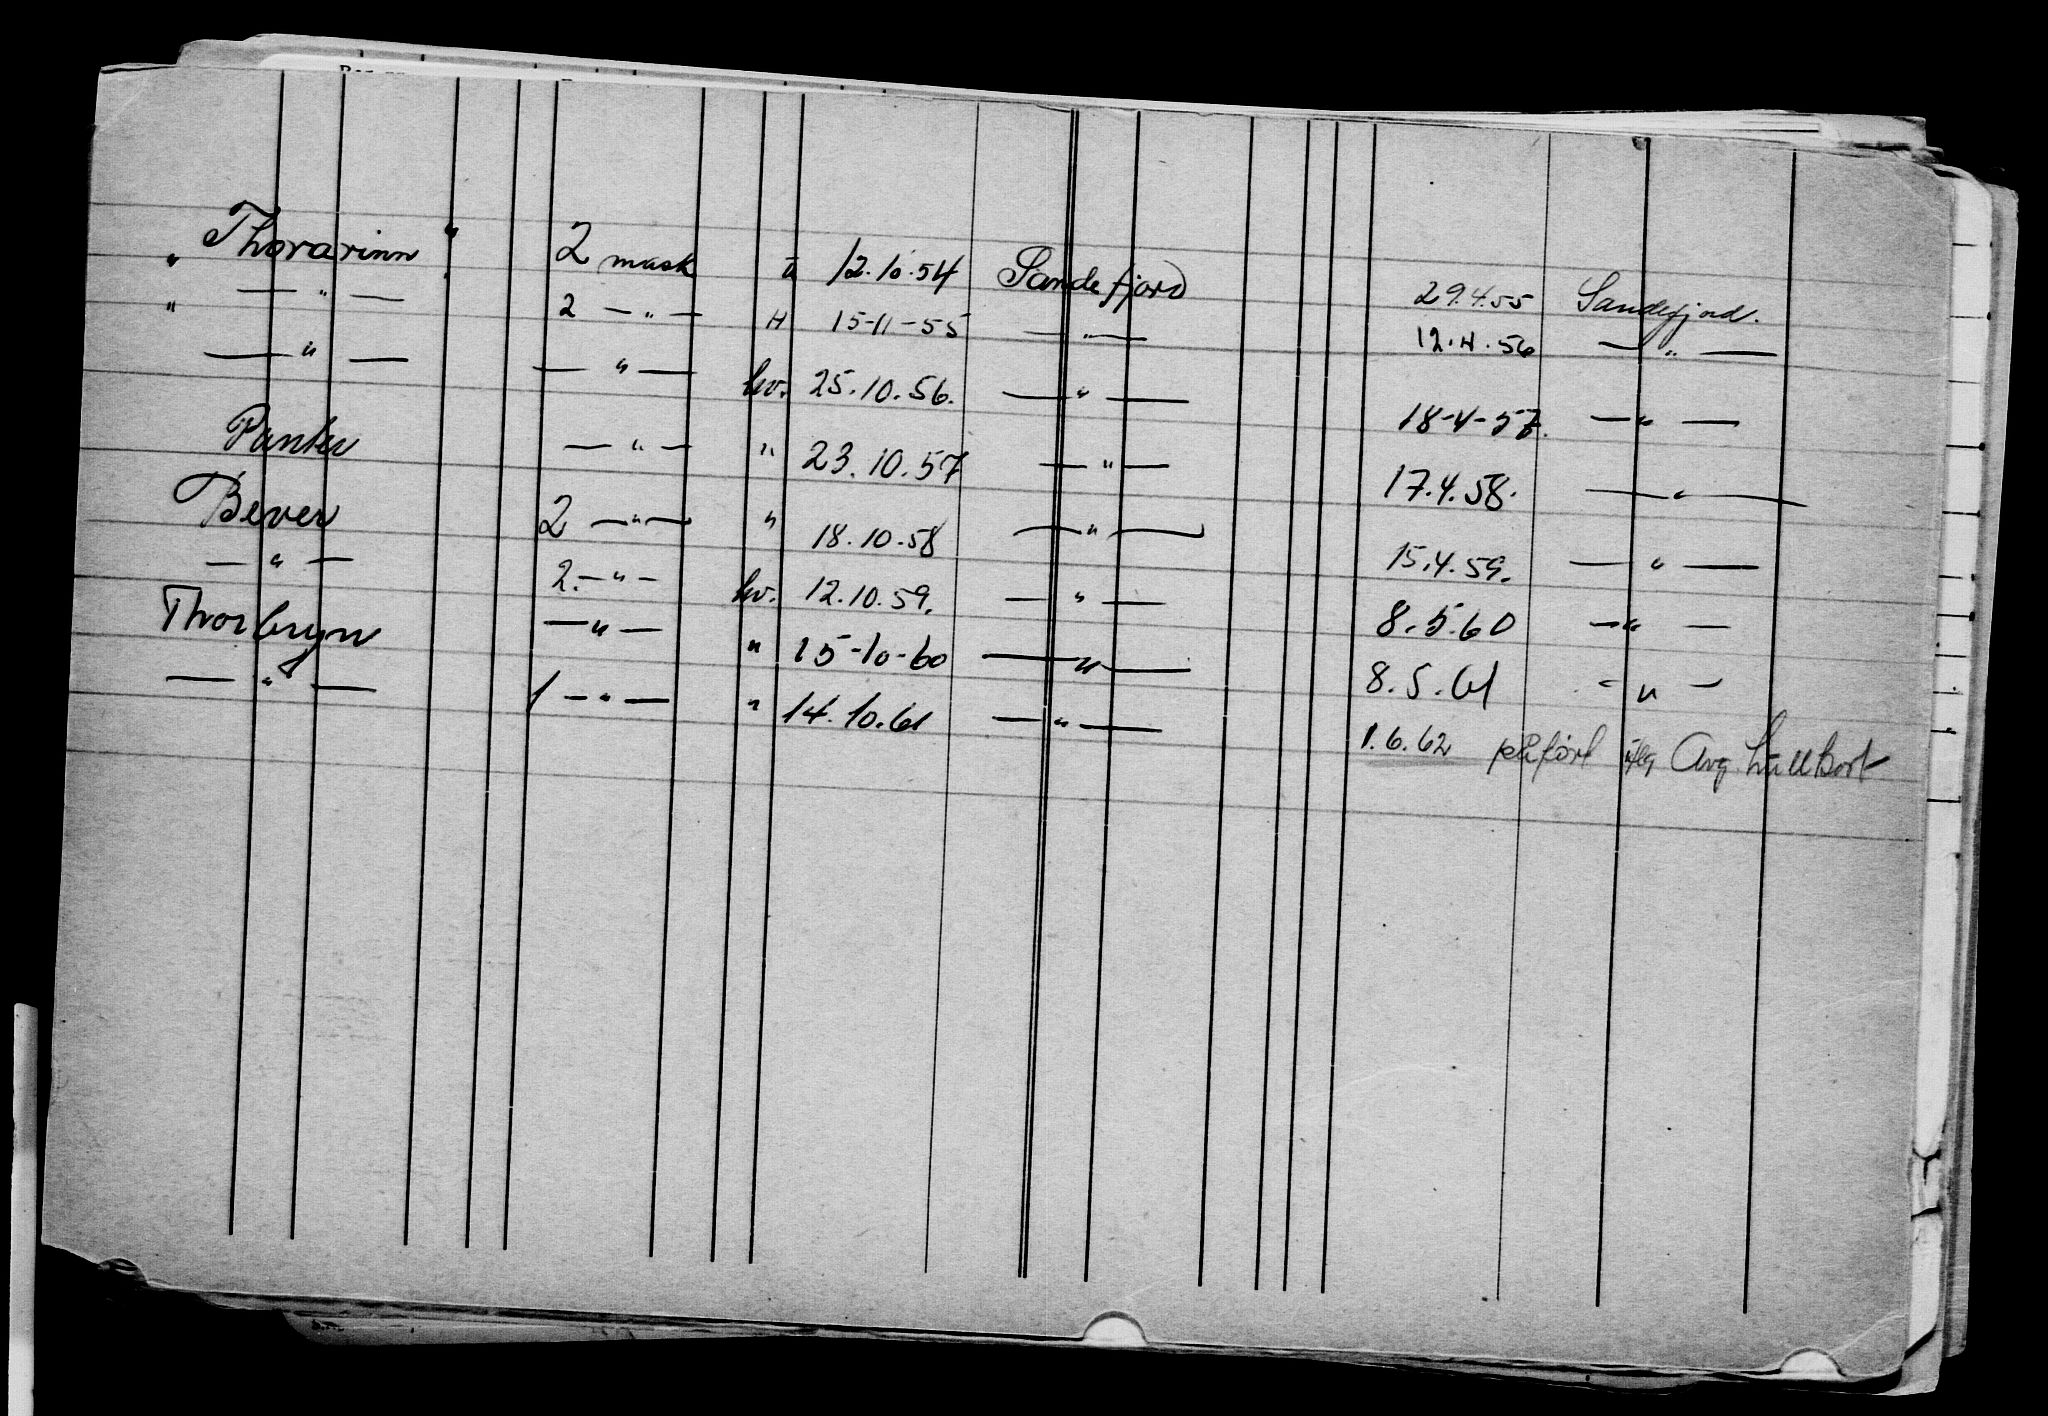 " Thorarinn " 2 mask ū 12.10.54 Sandefjord 29.4.55 Sandefjord.
" — " — 2 — " — H 15-11-55 — " — 12.4.56 — " —
— " — — " — hv. 25.10.56. — " — 18-4-57. — " —
Panter — " — " 23.10.57 — " — 17.4.58. — " —
Bever 2 — " — " 18.10.58 — " — 15.4.59. — " —
— " — 2. — " — hv. 12.10.59. — " — 8.5.60 — " —
Thorbryn — " — " 15-10-60 — " — 8.5.61 — " —
— " — 1 — " — " 14.10.61 — " — 1.6.62 påført Avg